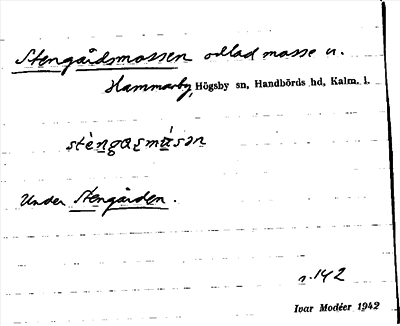 Stengårdsmossen odlad mosse u.
Hammarby, Högsby sn, Handbörds hd, Kalm. l.
stèngasmásən
Under Stengården.
s. 142
Ivar Modéer 1942